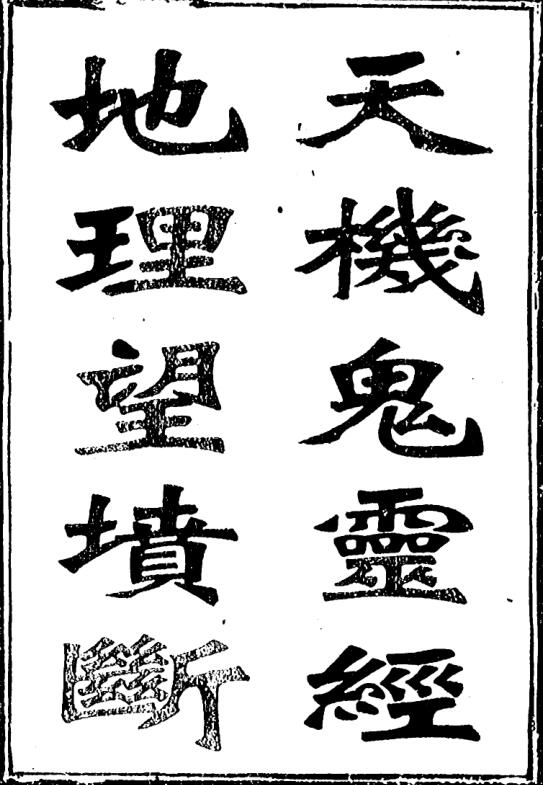 天機鬼靈經
地理望墳斷